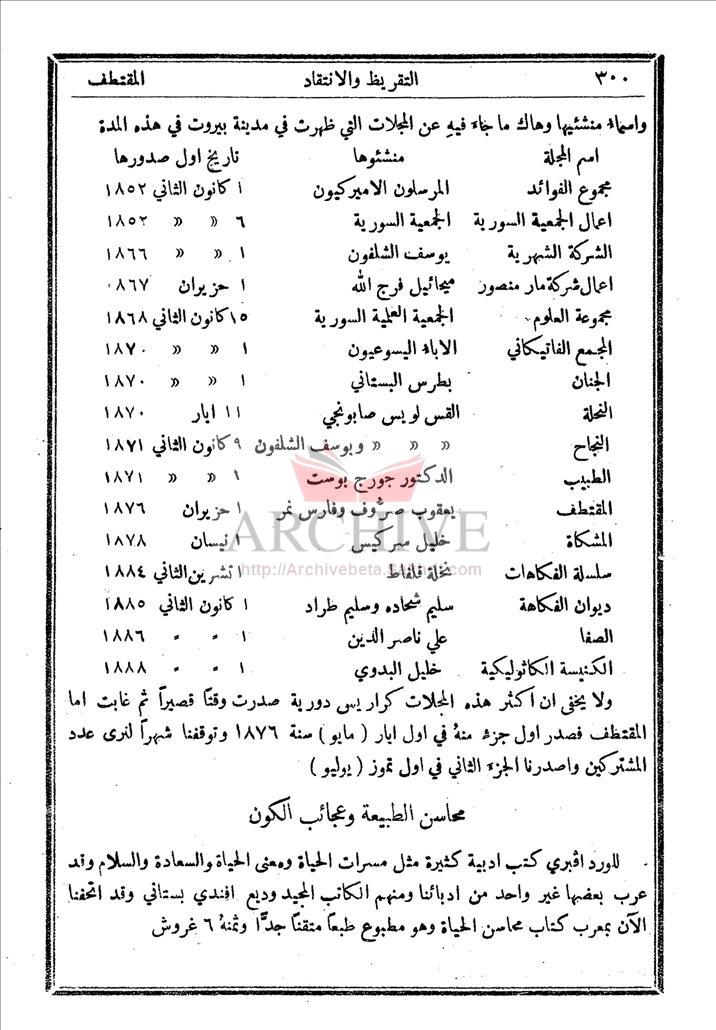 ٣٠٠ التقريظ والانتقاد المقتطف
واسماء منشئيها وهاك ما جاء فيهِ عن المجلات التي ظهرت في مدينة بيروت في هذه المدة
اسم المجلة منشئوها تاريخ اول صدورها
مجموع الفوائد المرسلون الاميركيون ١ كانون الثاني ١٨٥٢
اعمال الجمعية السورية الجمعية السورية ٦ » » ١٨٥٢
الشركة الشهرية يوسف الشلفون ١ » » ١٨٦٦
اعمال شركة مار منصور ميخائيل فرج الله ١ حزيران ٨٦٧
مجموعة العلوم الجمعية العلمية السورية ١٥ كانون الثاني ١٨٦٨
المجمع الفاتيكاني الاباء اليسوعيون ١ » » ١٨٧٠
الجنان بطرس البستاني ١ » » ١٨٧٠
النحلة القس لويس صابونجي ١١ ايار ١٨٧٠
النجاح » » » ويوسف الشلفون ٩ كانون الثاني ١٨٧١
الطبيب الدكتور جورج بوست ١ » » ١٨٧١
المقتطف يعقوب صرُّوف وفارس نمر ١ حزيران ١٨٧٦
المشكاة خليل سركيس ١ نيسان ١٨٧٨
سلسلة الفكاهات نخلة قلفاط ١ تشرين الثاني ١٨٨٤
ديوان الفكاهة سليم شحاده وسليم طراد ١ كانون الثاني ١٨٨٥
الصفا علي ناصر الدين ١ " " ١٨٨٦
الكنيسة الكاثوليكية خليل البدوي ١ " " ١٨٨٨
ولا يخفى ان اكثر هذه المجلات كراريس دورية صدرت وقتًا قصيرًا ثم غابت اما
المقتطف فصدر اول جزء منهُ في اول ايار ( مايو ) سنة ١٨٧٦ وتوقفنا شهرًا لنرى عدد
المشتركين واصدرنا الجزء الثاني في اول تموز ( يوليو )
محاسن الطبيعة وعجائب الكون
للورد اڤبري كتب ادبية كثيرة مثل مسرات الحياة ومعنى الحياة والسعادة والسلام وقد
عرب بعضها غير واحد من ادبائنا ومنهم الكاتب المجيد وديع افندي بستاني وقد اتحفنا
الآن بمعرب كتاب محاسن الحياة وهو مطبوع طبعًا متقنًا جدًّا وثمنهُ ٦ غروش
ARCHIVE